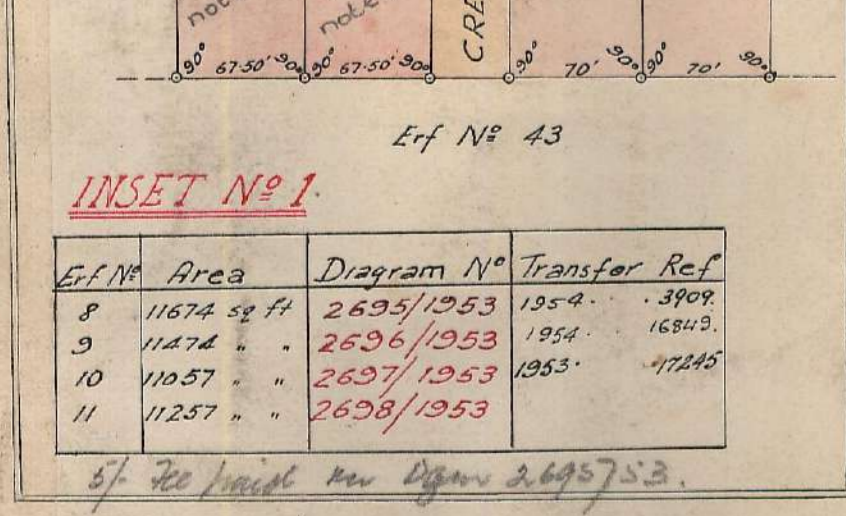 not
note
CRE
90° 67·50' 90° 90° 67·50' 90° 90° 70' 90° 90° 70' 90°
Erf Nº 43
INSET Nº 1.
Erf Nº Area Diagram Nº Transfer Ref
8 11674 sq ft 2695/1953 1954. . 3909.
9 11474 " " 2696/1953 1954. 16849.
10 11057 " " 2697/1953 1953. 17245
11 11257 " " 2698/1953
5/- Fee paid on Dgm 2695/53.